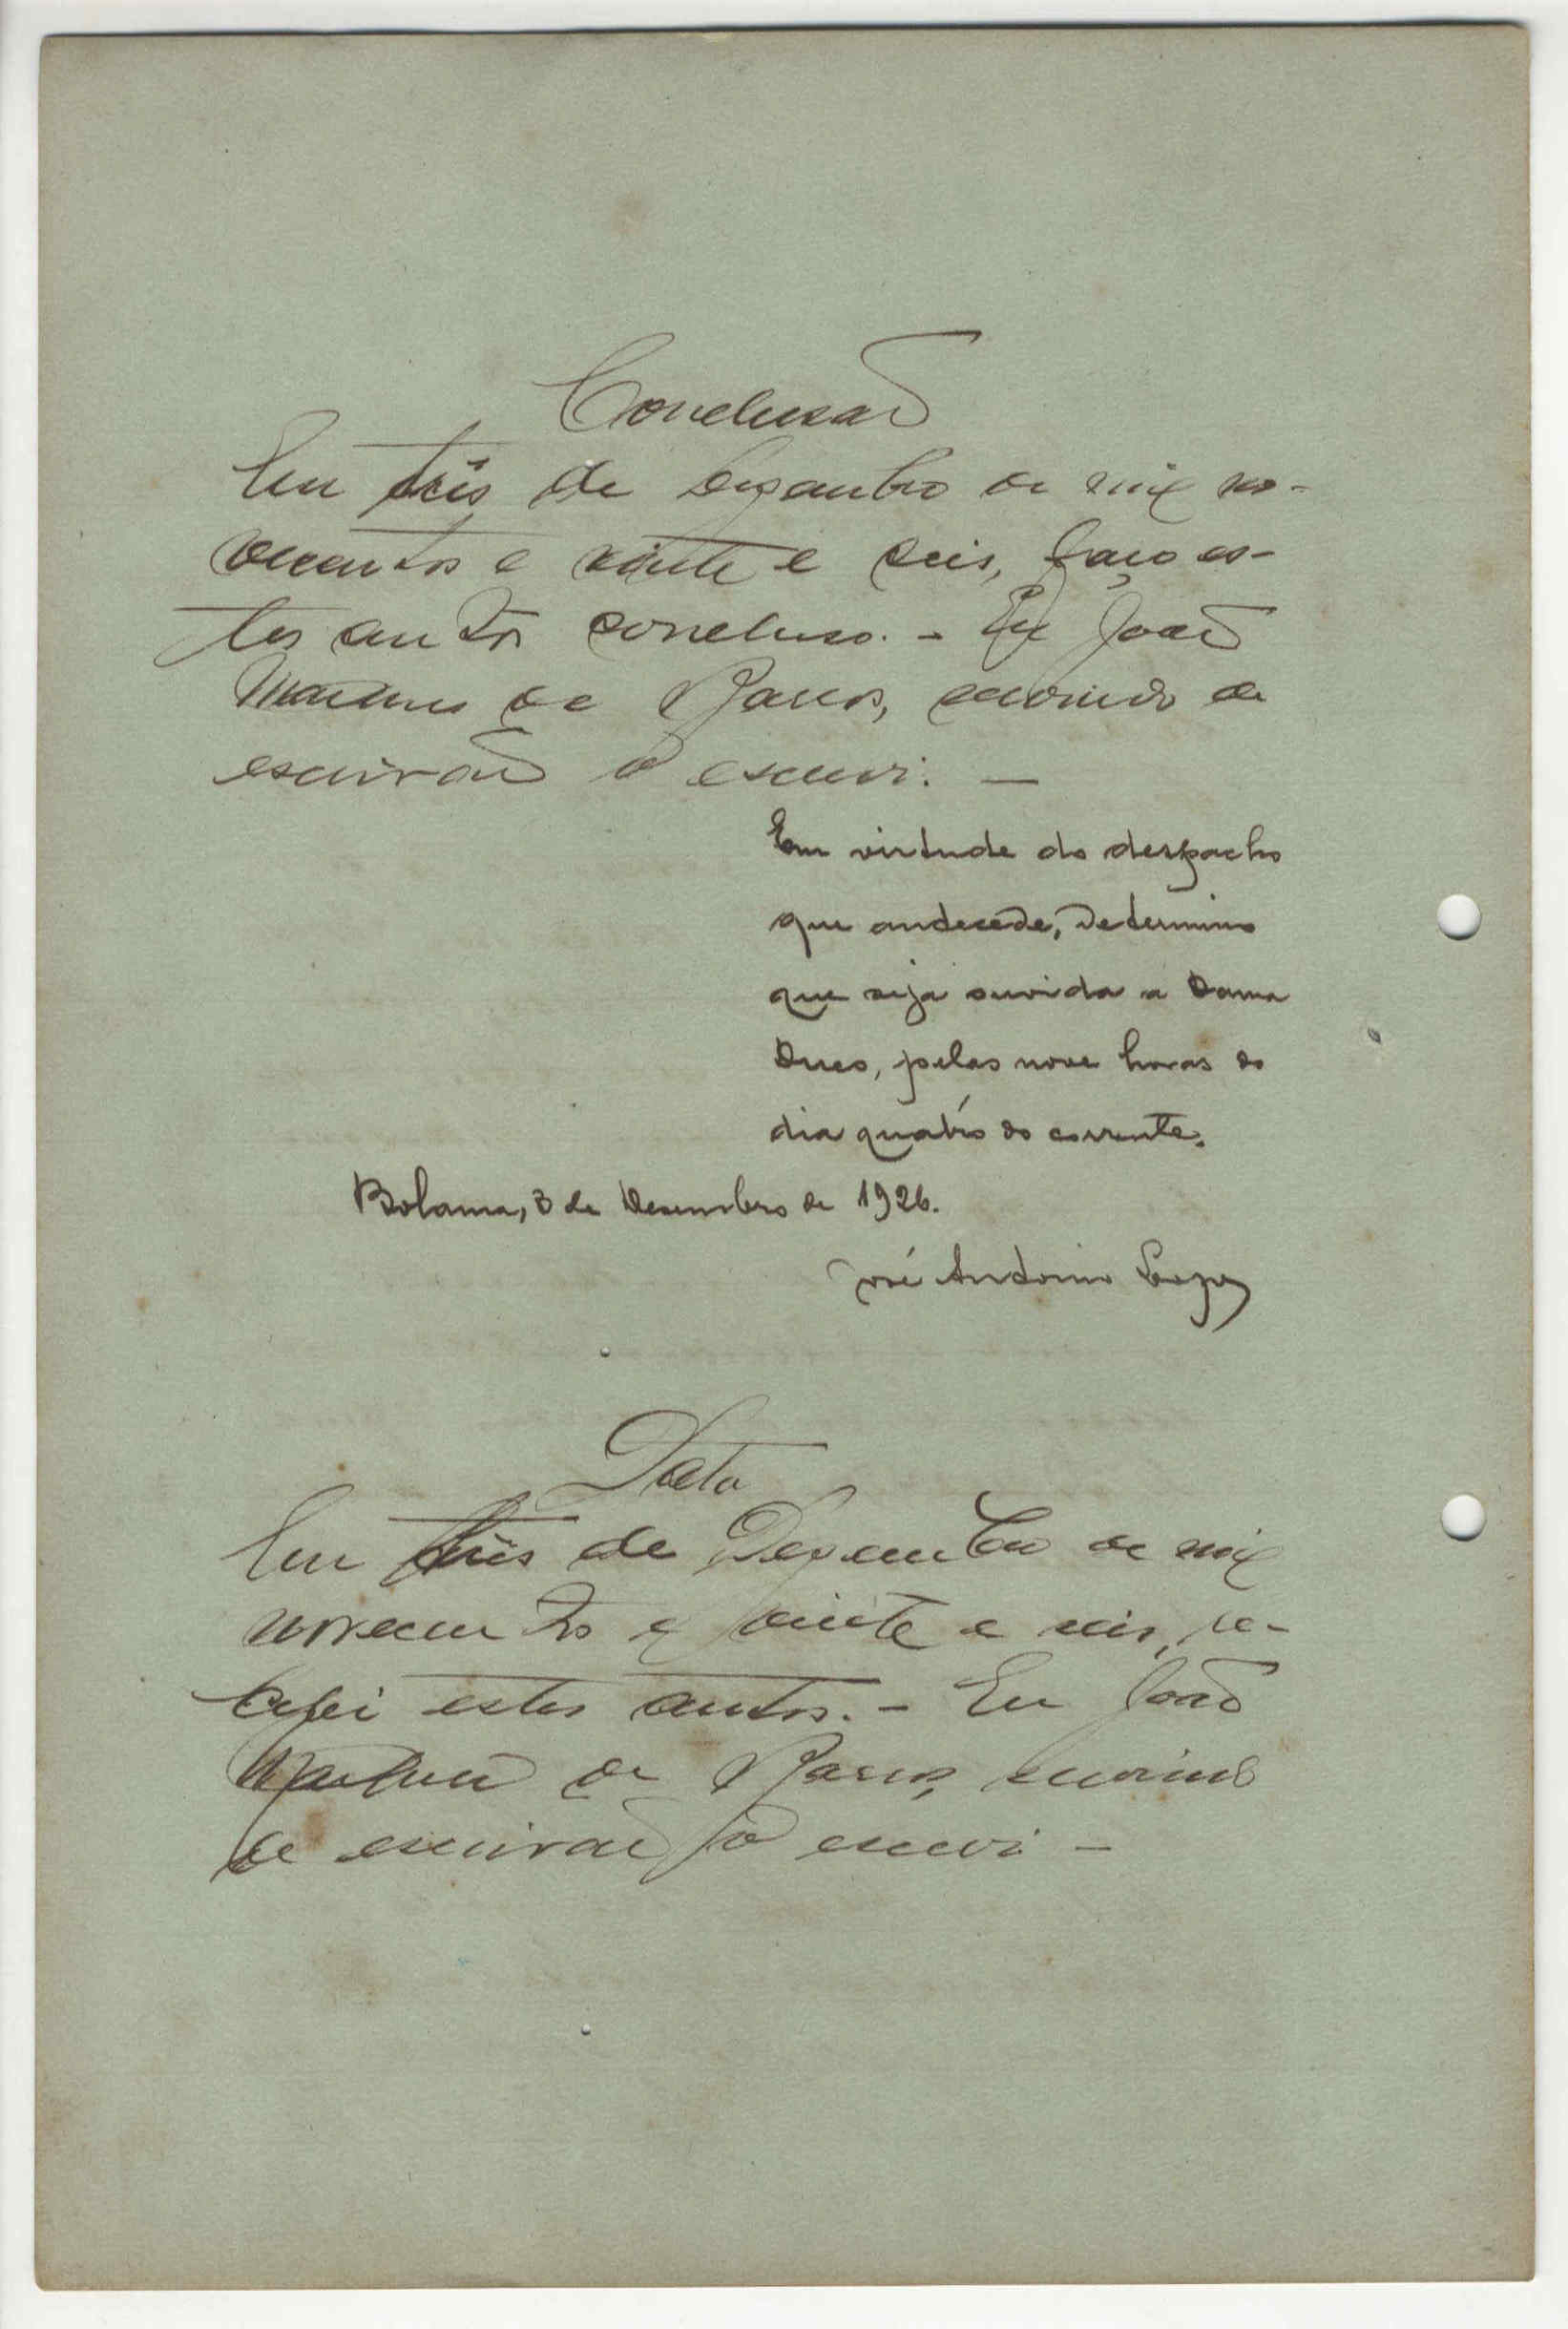 Conclusão
Em três de Dezembro de mil no-
vecentos e vinte e seis, faço es-
tes autos concluso. - Eu João
Martins de Barros, servindo de
escrivão o escrevi. —
Em virtude do despacho
que antecede, determino
que seja ouvida a Dama
pelas nove horas do
dia quatro do corrente.
Bolama, 3 de Desembro de 1926.
José Antonio Lopes
Data
Em três de Dezembro de mil
novecentos e vinte e seis, re-
cebi estes autos. - Eu João
Martins de Barros, servindo
de escrivão o escrevi -